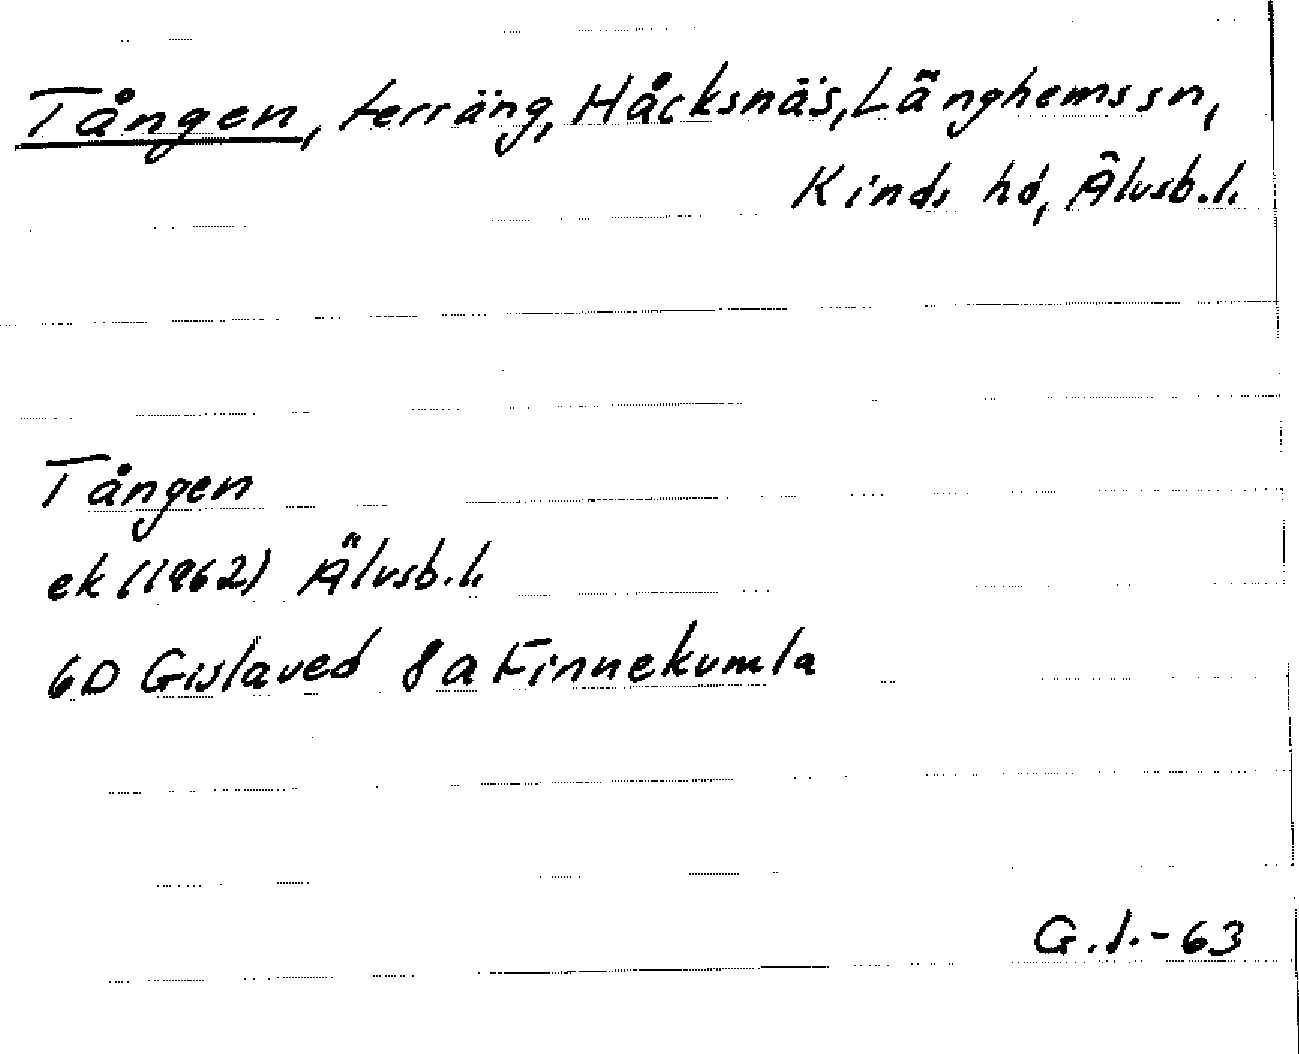 Tången, terräng, Håcksnäs, Länghems sn,
Kinds hd, Älvsb.l.
Tången
ek (1962) Älvsb.l.
6D Gislaved 8a Finnekumla
G.I.-63